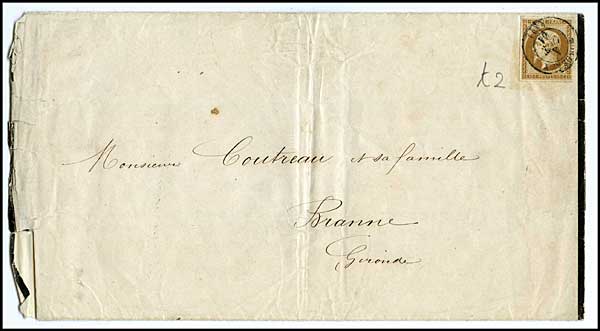 t2
Monsieur Coutreau et sa famille
Branne
Gironde